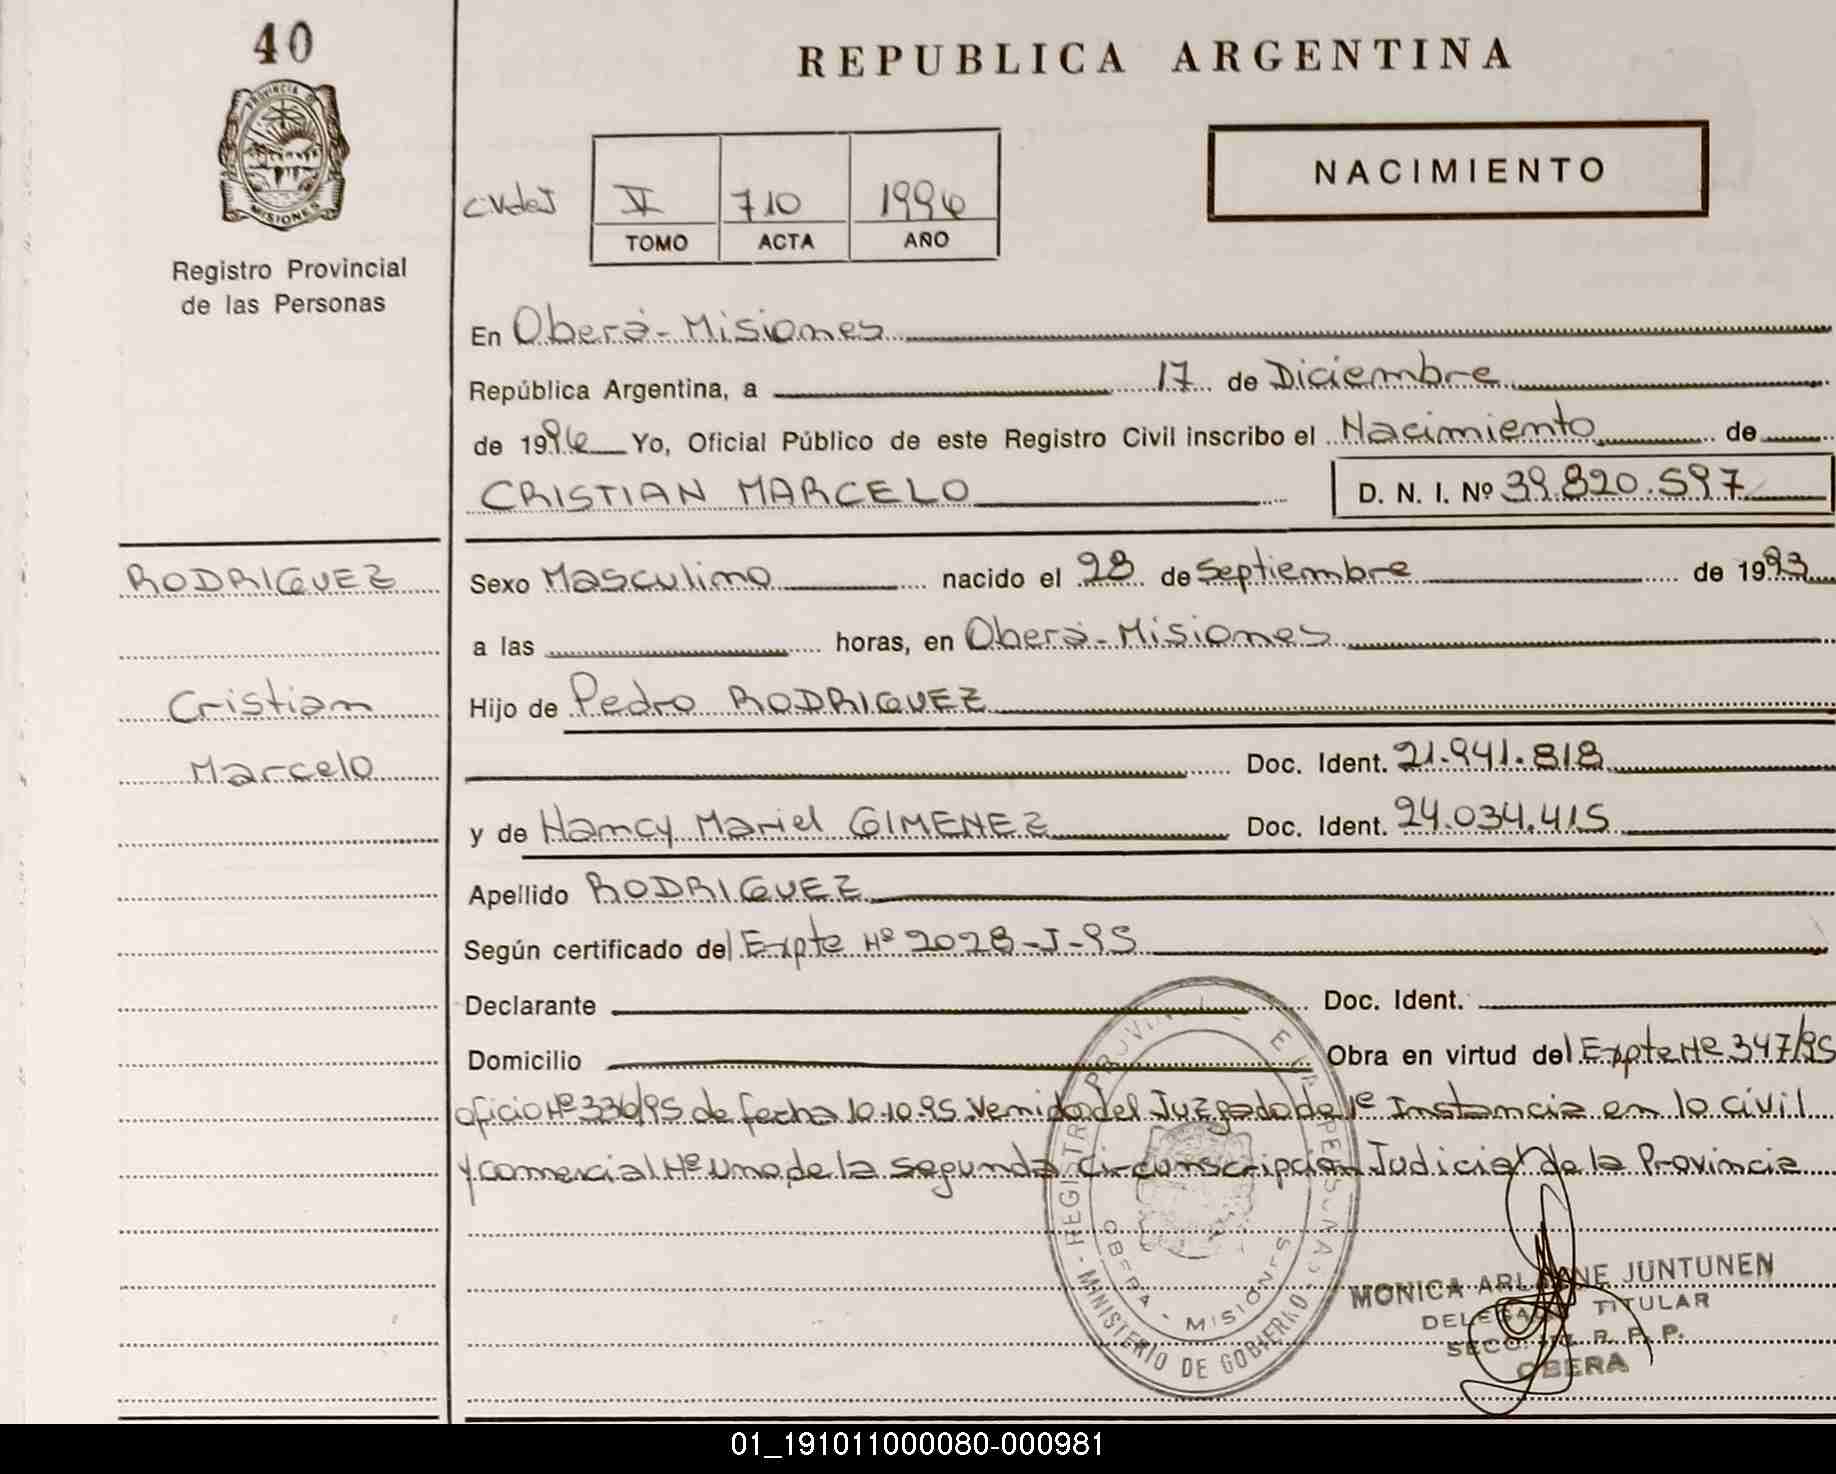 40
PROVINCIA DE
MISIONES
Registro Provincial
de las Personas
REPUBLICA ARGENTINA
NACIMIENTO
CVdeJ
V 710 1996
TOMO ACTA AÑO
En Oberá-Misiones
República Argentina, a 17 de Diciembre
de 1996 Yo, Oficial Público de este Registro Civil inscribo el Nacimiento de
CRISTIAN MARCELO D. N. I. Nº 39.820.597
RODRIGUEZ
Cristian
Marcelo
Sexo Masculino nacido el 28 de Septiembre de 1993
a las horas, en Oberá-Misiones
Hijo de Pedro RODRIGUEZ
Doc. Ident. 21.941.818
y de Nancy Mariel GIMENEZ Doc. Ident. 24.034.415
Apellido RODRIGUEZ
Según certificado del Expte Nº 2028-J-95
Declarante Doc. Ident.
Domicilio Obra en virtud del Expte Nº 347/95
oficio Nº 336/95 de fecha 10.10.95 Venido del Juzgado de 1º Instancia en lo civil
y comercial Nº Uno de la segunda Circunscripción Judicial de la Provincia
REGISTRO PROVINCIAL DE LAS PERSONAS
MINISTERIO DE GOBIERNO
OBERA - MISIONES
MONICA JUNTUNEN
DELEGADA TITULAR
R. P. P.
OBERA
01_191011000080-000981